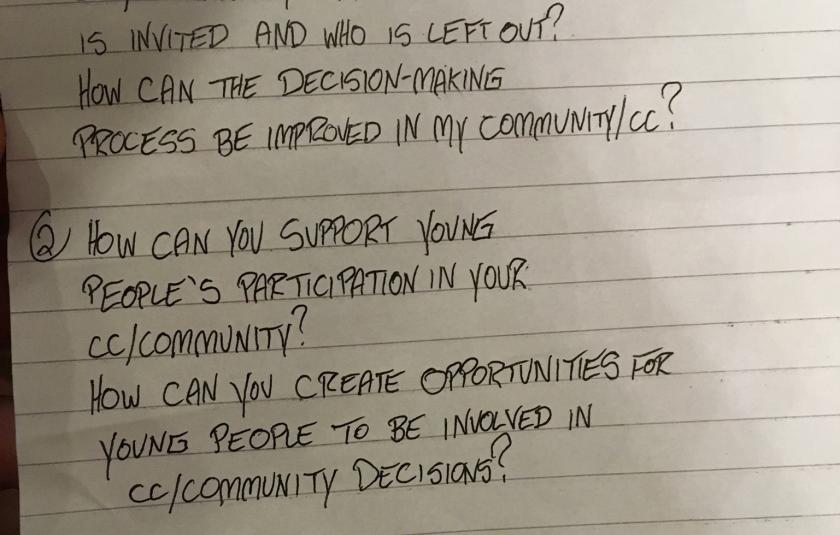 IS INVITED AND WHO IS LEFT OUT?
HOW CAN THE DECISION-MAKING
PROCESS BE IMPROVED IN MY COMMUNITY/CC?
② HOW CAN YOU SUPPORT YOUNG
PEOPLE'S PARTICIPATION IN YOUR
CC/COMMUNITY?
HOW CAN YOU CREATE OPPORTUNITIES FOR
YOUNG PEOPLE TO BE INVOLVED IN
CC/COMMUNITY DECISIONS?